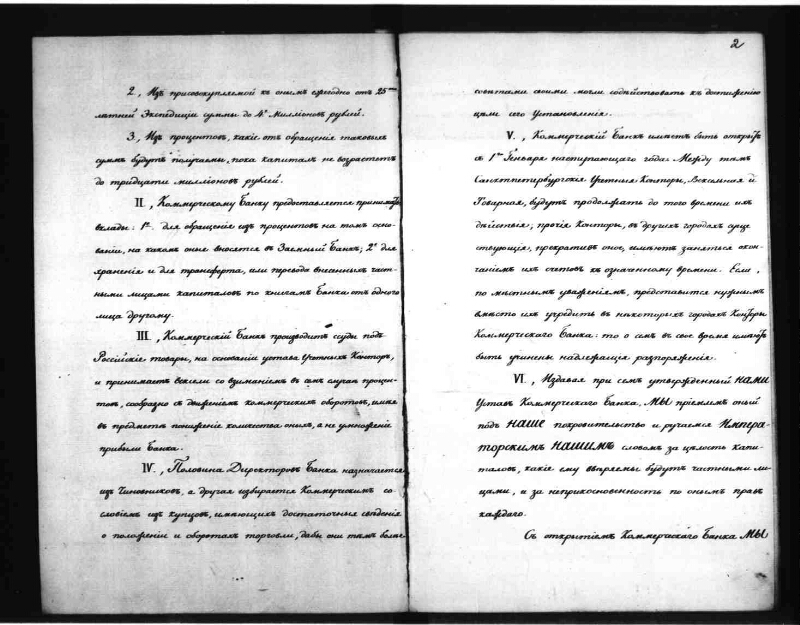 2., Изъ присовокупляемой къ онымъ ежегодно отъ 25ти
лѣтней Экспедиціи суммы до 4хъ Милліоновъ рублей.
3., Изъ процентовъ, какіе отъ обращенія таковыхъ
суммъ будутъ получаемы, пока капиталъ не возрастетъ
до тридцати милліоновъ рублей.
II., Коммерческому Банку предоставляется принимать
вклады: 1е для обращенія изъ процентовъ на томъ осно-
ваніи, на какомъ оныя вносятся въ Заемный Банкъ; 2е для
храненія и для трансферта, или перевода внесенныхъ част-
ными лицами капиталовъ по книгамъ Банка отъ одного
лица другому.
III., Коммерческій Банкъ производитъ ссуды подъ
Россійскіе товары, на основаніи устава Учетныхъ Конторъ,
и принимаетъ векселя со взиманіемъ въ семъ случаѣ процен-
товъ, сообразно съ движеніемъ коммерческихъ оборотовъ, имѣя
въ предметъ пониженіе количества оныхъ, а не умноженіе
прибыли Банка.
IV., Половина Директоровъ Банка назначается
изъ Чиновниковъ, а другая избирается Коммерческимъ со-
словіемъ изъ купцовъ, имѣющихъ достаточныя свѣденія
о положеніи и оборотахъ торговли, дабы они тѣмъ болѣе
2
совѣтами своими могли содѣйствовать къ достиженію
цѣли сего установленія.
V., Коммерческій Банкъ имѣетъ быть открытъ
съ 1го Генваря наступающаго года. Между тѣмъ
Санктпетербургскія Учетныя Конторы, Вексельная и
Товарная, будутъ продолжать до того времени ихъ
дѣйствія; прочія Конторы, въ другихъ городахъ суще
ствующія, прекративъ оное, имѣютъ заняться окон-
чаніемъ ихъ счетовъ къ означенному времени. Если,
по мѣстнымъ уваженіямъ, представится нужнымъ
вмѣсто ихъ учредить въ нѣкоторыхъ городахъ Конторы
Коммерческаго Банка: то о семъ въ свое время имѣютъ
быть учинены надлежащія распоряженія.
VI., Издавая при семъ утвержденный НАМИ
Уставъ Коммерческаго Банка, МЫ пріемлемъ оный
подъ НАШЕ покровительство и ручаемся Импера-
торскимъ НАШИМЪ словомъ за цѣлость капи-
таловъ, какіе ему ввѣряемы будутъ частными ли-
цами, и за неприкосновенность по онымъ правъ
каждаго.
Съ открытіемъ Коммерческаго Банка МЫ